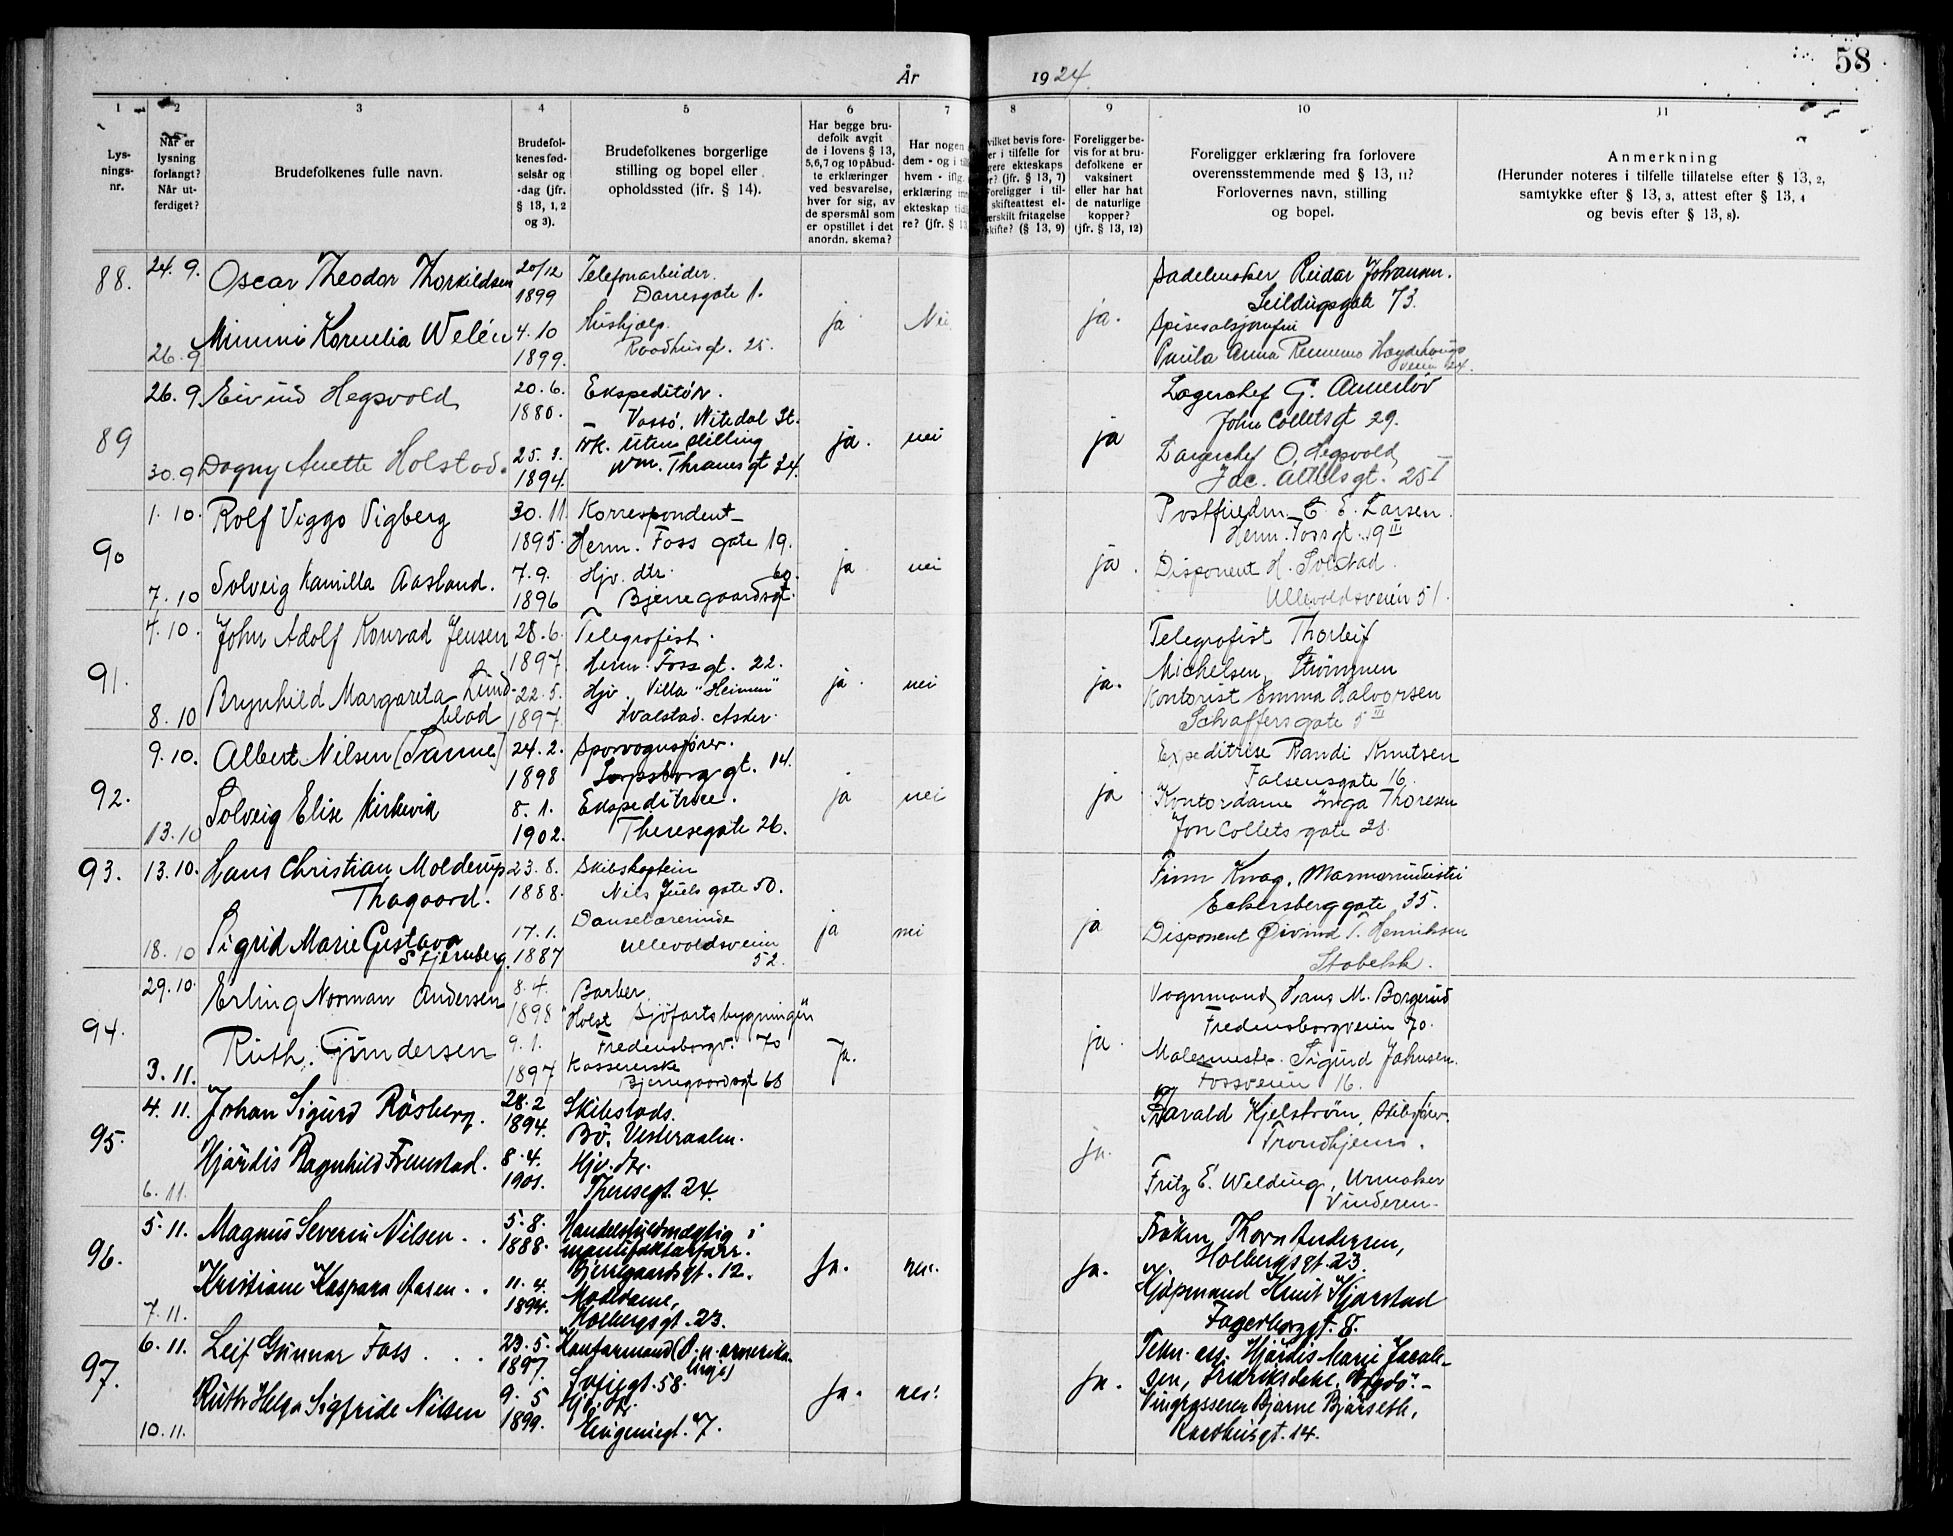 58
År 1924.
1 2 3 4 5 6 7 8 9 10 11
Lys-
nings-
nr.
Når er
lysning
forlangt?
Når ut-
ferdiget?
Brudefolkenes fulle navn.
Brudefol-
kenes fød-
selsår og
-dag (jfr.
§ 13, 1, 2
og 3).
Brudefolkenes borgerlige
stilling og bopel eller
opholdssted (jfr. § 14).
Har begge bru-
defolk avgit
de i lovens § 13,
5, 6, 7 og 10 påbud-
te erklæringer
ved besvarelse,
hver for sig, av
de spørsmål som
er opstillet i det
anordn. skema?
Har nogen
dem - og i
hvem - iflg.
erklæring
ekteskap
re? (jfr. §
vilket bevis fore-
er i tilfelle for
gere ekteskaps
r? (jfr. § 13, 7)
Foreligger i til-
skifteattest el-
ærskilt fritagelse
skifte? (§ 13, 9)
Foreligger be-
vis for at bru-
defolkene er
vaksinert
eller har hat
de naturlige
kopper?
(jfr. § 13, 12)
Foreligger erklæring fra forlovere
overensstemmende med § 13, 11?
Forlovernes navn, stilling
og bopel.
Anmerkning
(Herunder noteres i tilfelle tillatelse efter § 13, 2,
samtykke efter § 13, 3, attest efter § 13, 4
og bevis efter § 13, 8).
88.
24. 9.
26. 9
Oscar Theodor Thorkildsen
Mimmi Kornelia Welén
20/12
1899
4. 10
1899.
Telefonarbeider.
Darresgate 1.
Hushjælp.
Raadhusgt. 25.
ja
Nei
ja.
Sadelmaker Reidar Johansen.
Seildugsgate 73.
Paula Anna
89
26. 9
30. 9
Eivind Hegsvold
Dagny Anette Holstad.
20. 6.
1880.
25. 3.
1894.
Ekspeditør.
Nitedal St.
frk. uten stilling
Wm. Thranesgt 34.
ja.
nei
ja
Lagerchef G.
John Colletsgt 29.
Lagerchef O. Hegsvold
Jac. Aallsgt. 25 I
90
1. 10.
7. 10
Rolf Viggo Vigberg
Solveig Kamilla Aasland.
30. 11
1895.
7. 9.
1896
Korrespondent
Herm. Foss gate 19.
Hjv. dtr. 60.
Bjerregaardsgt.
ja
nei
ja.
C. E. Larsen.
Herm. Fossgt. 19 III
Disponent H. Solstad.
Ullevoldsveien 51.
91.
4. 10.
8. 10
John Adolf Konrad Jensen
Brynhild Margareta Lund-
blad
28. 6.
1897
22. 5.
1897.
Telegrafist.
Herm. Fossgt. 22.
Hjv. Villa "Heimen"
Hvalstad. Asker.
ja.
nei
ja.
Telegrafist Thorleif
Michelsen, Strømmen
Kontorist Emma Halvorsen
Schaffersgate 5 III
92.
9. 10.
13. 10
Albert Nilsen
Solveig Elise Kirkevik
24. 2.
1898
8. 1.
1902.
Sporvognsfører.
Sarpsborggt. 14.
Ekspeditrice.
Theresegate 26.
ja
nei
ja
Expeditrise Randi Knutsen
Falsensgate 16.
Kontordame Inga Thoresen
Jon Collets gate 28.
93.
13. 10.
18. 10
Hans Christian Molderup
Thagaard.
Sigrid Marie Gustava
Stjernberg.
23. 8.
1888.
17. 1.
1887
Skibskaptein
Nils Juels gate 50.
Danselærerinde
Ullevoldsveien
52.
ja
nei
ja
Finn Knag, Marmorindustri
Eckersberggate 35.
Disponent Øivind T. Henriksen
Stabekk.
94.
29. 10.
3. 11.
Erling Norman Andersen
Ruth Gundersen
8. 4.
1898
9. 1.
1897
Barber
Holst Sjøfartsbygningen
Fredensborgv. 70
Kassererske
Bjerregaardsgt 68
Ja.
ja.
Vognmand Hans M. Borgerud
Fredensborgveien 70.
Malermester Sigurd Johnsen.
Fossveien 16.
95.
4. 11.
6. 11.
Johan Sigurd Røsberg.
Hjørdis Ragnhild Fremstad.
28. 2
1894.
8. 4.
1901.
Skibstøds.
Bø, Vesteraalen.
Hjv. dtr.
Theresegt. 24.
ja.
Harald Kjelstrøm,
Trondhjem.
Fritz E. Welding, Urmaker
Vinderen.
96.
5. 11.
7. 11.
Magnus Severin Nilsen . .
Kristiane Kaspara Aasen . .
5. 8.
1888.
11. 4.
1894.
Handelsfuldmægtig i
manufakturforr.
Bjerregaardsgt. 12.
Modedame,
Holbergsgt. 23.
Ja.
nei.
Ja.
Frøken Thora Andersen,
Holbergsgt. 23.
Kjøpmand Knut Kjørstad
Fagerborggt. 8.
97.
6. 11.
10. 11.
Leif Gunnar Foss . . .
Ruth Helga Sigfride Nilsen
23. 5.
1897.
9. 5
1899.
Kontormand (D. n. amerika-
linje)
Sofiegt. 58.
Hjv. dtr.
Eugeniegt. 7.
Ja.
nei.
Ja.
Telm. ass. Hjørdis Marie Jacob-
sen, Fredriksdahl, Bygdø. -
Vingrosserer Bjarne Bjørseth,
Raadhusgt. 14.